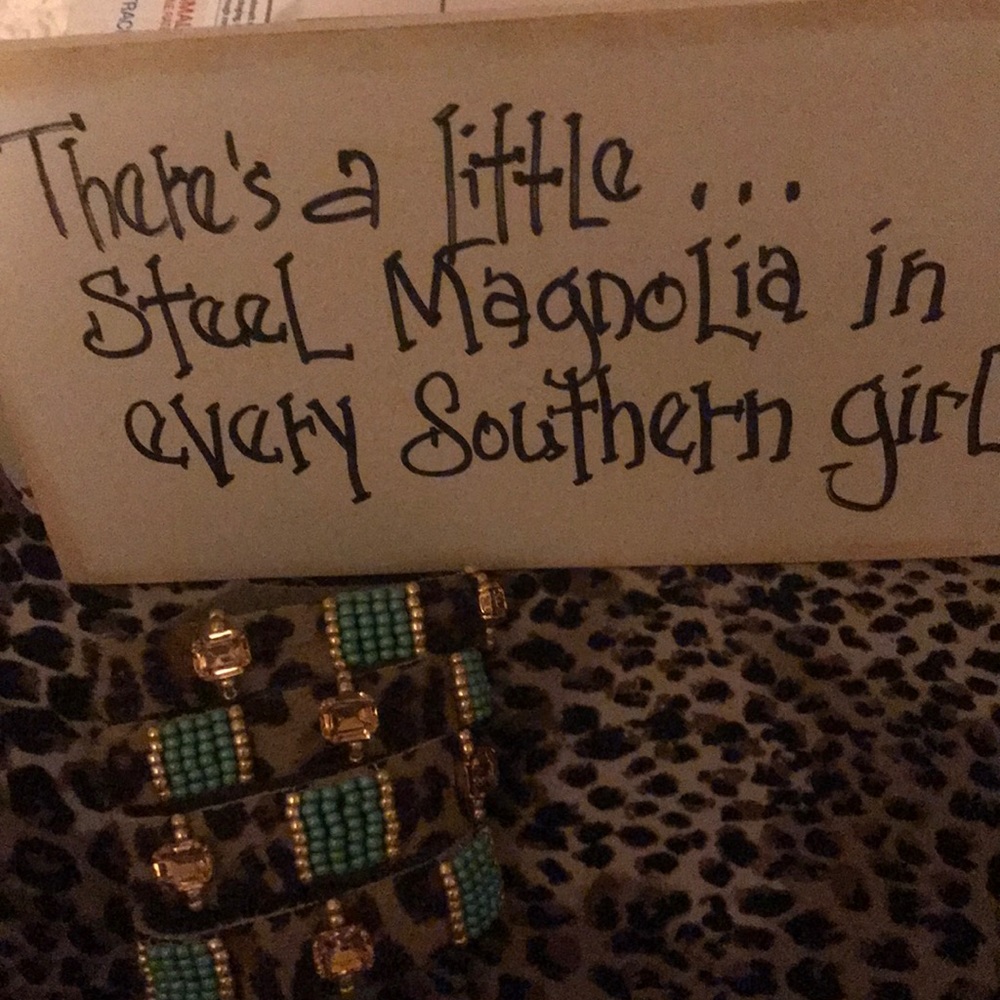 There's a little ...
Steel Magnolia in
every Southern girl